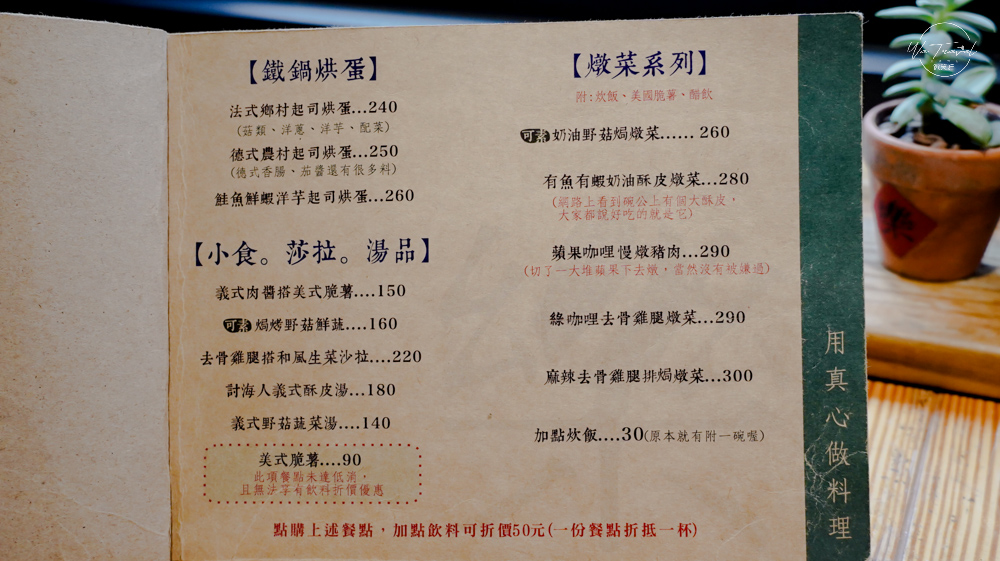 【鐵鍋烘蛋】
法式鄉村起司烘蛋...240
(菇類、洋蔥、洋芋、配菜)
德式農村起司烘蛋...250
(德式香腸、茄醬還有很多料)
鮭魚鮮蝦洋芋起司烘蛋...260
【小食。莎拉。湯品】
義式肉醬搭美式脆薯....150
可素 焗烤野菇鮮蔬....160
去骨雞腿搭和風生菜沙拉....220
討海人義式酥皮湯...180
義式野菇蔬菜湯....140
美式脆薯....90
此項餐點未達低消，
且無法享有飲料折價優惠
【燉菜系列】
附:炊飯、美國脆薯、醋飲
可素 奶油野菇焗燉菜...... 260
有魚有蝦奶油酥皮燉菜...280
(網路上看到碗公上有個大酥皮，
大家都說好吃的就是它)
蘋果咖哩慢燉豬肉...290
(切了一大堆蘋果下去燉，當然沒有被嫌過)
綠咖哩去骨雞腿燉菜...290
麻辣去骨雞腿排焗燉菜...300
加點炊飯....30(原本就有附一碗喔)
點購上述餐點，加點飲料可折價50元(一份餐點折抵一杯)
用真心做料理